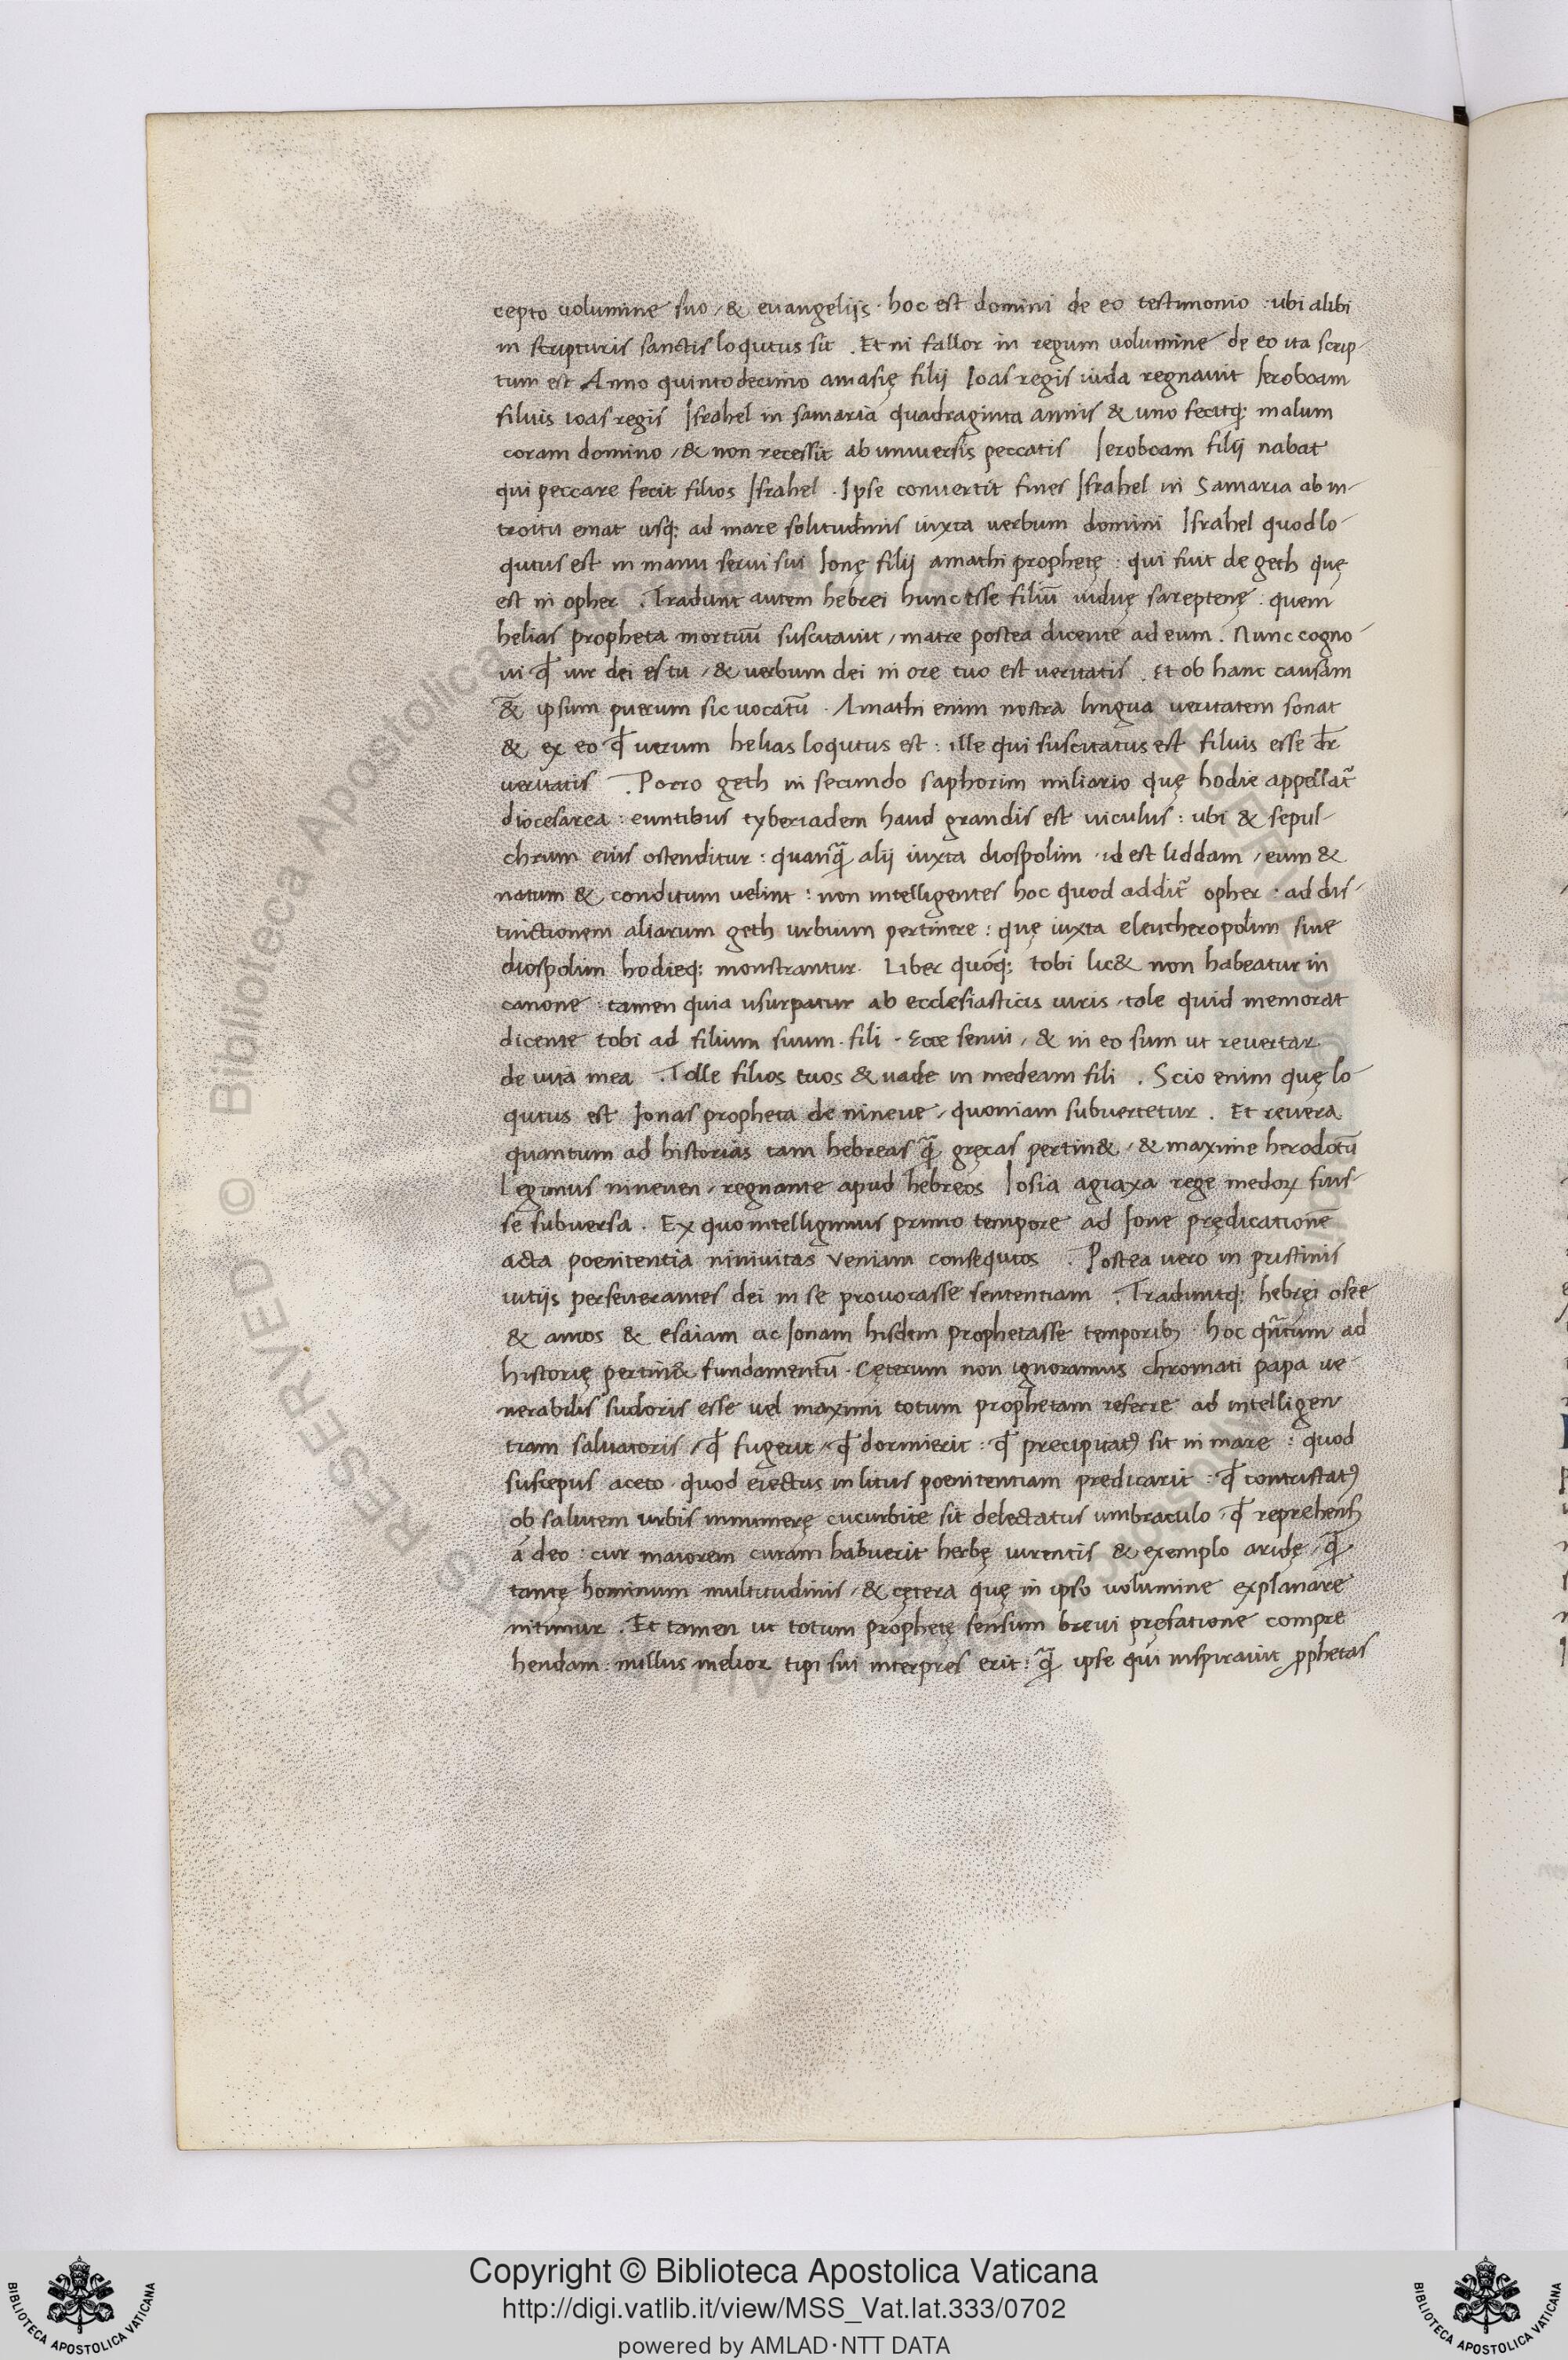 cepto volumine suo, & euangelijs · hoc est domini de eo testimonio : ubi alibi
in scripturis sanctis loqutus sit . Et ni fallor in regum uolumine de eo ita scrip-
tum est Anno quintodecimo amasię filij Ioas regis iuda regnauit Ieroboam
filius ioas regis Israhel in samaria quadraginta annis & uno fecitq; malum
coram domino, & non recessit ab uniuersis peccatis Ieroboam filij nabat
qui peccare fecit filios Israhel . Ipse conuertit fines Israhel in Samaria ab in-
troitu emat usq; ad mare solitudinis iuxta uerbum domini Israhel quod lo-
qutus est in manu serui sui Ionę filij amathi prophetę : qui fuit de geth quę
est in opher . Tradunt autem hebrei hunc esse filiū uiduę sareptenę : quem
helias propheta mortuū suscitauit, matre postea dicente ad eum . Nunc cogno-
ui ꝙ uir dei es tu, & uerbum dei in ore tuo est ueritatis . Et ob hanc causam
& ipsum puerum sic uocatū . Amathi enim nostra lingua ueritatem sonat
& ex eo ꝙ uerum helias loqutus est : ille qui suscitatus est filius esse dr̄
ueritatis . Porro geth in secundo saphorim miliario quę hodie appellat᷑
diocesarea : euntibus tyberiadem haud grandis est uiculus : ubi & sepul-
chrum eius ostenditur : quanq̄ alij iuxta diospolim · id est liddam, eum &
natum & conditum uelint : non intelligentes hoc quod addit᷑ opher : ad dis-
tinctionem aliarum geth urbium pertinere : quę iuxta eleutheropolim siue
diospolim hodieq; monstrantur. Liber quóq; tobi lic& non habeatur in
canone : tamen quia usurpatur ab ecclesiasticis uiris, tale quid memorat
dicente tobi ad filium suum . fili . Ecce senui, & in eo sum ut revertar
de uita mea . Tolle filios tuos & uade in medeam fili . Scio enim quę lo-
qutus est Ionas propheta de nineue, quoniam subvertetur . Et reuera
quantum ad historias tam hebreas q̄ gręcas pertin&, & maxime herodotū
Legimus nineuen, regnante apud hebreos Iosia agiaxa rege medoꝝ fuis-
se subuersa . Ex quo intelligimus primo tempore ad Ione prędicationē
acta poenitentia niniuitas veniam consequtos . Postea uero in pristinis
uitijs perseuerantes dei in se prouocasse sententiam . Traduntq; hebręi osee
& amos & esaiam ac Ionam hisdem prophetasse temporib; . hoc qn̄tum ad
historię pertin& fundamentū . Cęterum non ignoramus chromati papa ue-
nerabilis sudoris esse uel maximi totum prophetam referre ad intelligen
tiam saluatoris, ꝙ fugerit, ꝙ dormierit : ꝙ precipitatꝰ sit in mare : quod
susceptus a ceto · quod eiectus in litus poenitentiam predicarit : ꝙ contristatꝰ
ob salutem urbis innumerę cucurbite sit delectatus umbraculo, ꝙ reprehensꝰ
á deo : cur maiorem curam habuerit herbę uirentis & exemplo aridę, q̄
tantę hominum multitudinis, & cętera quę in ipso uolumine explanare
nitimur . Et tamen ut totum prophetę sensum breui pręfatione compre
hendam : nullus melior tipi sui interpres erit : q̄ ipse qui inspirauit ꝓphetas
Copyright © Biblioteca Apostolica Vaticana
http://digi.vatlib.it/view/MSS_Vat.lat.333/0702
powered by AMLAD·NTT DATA